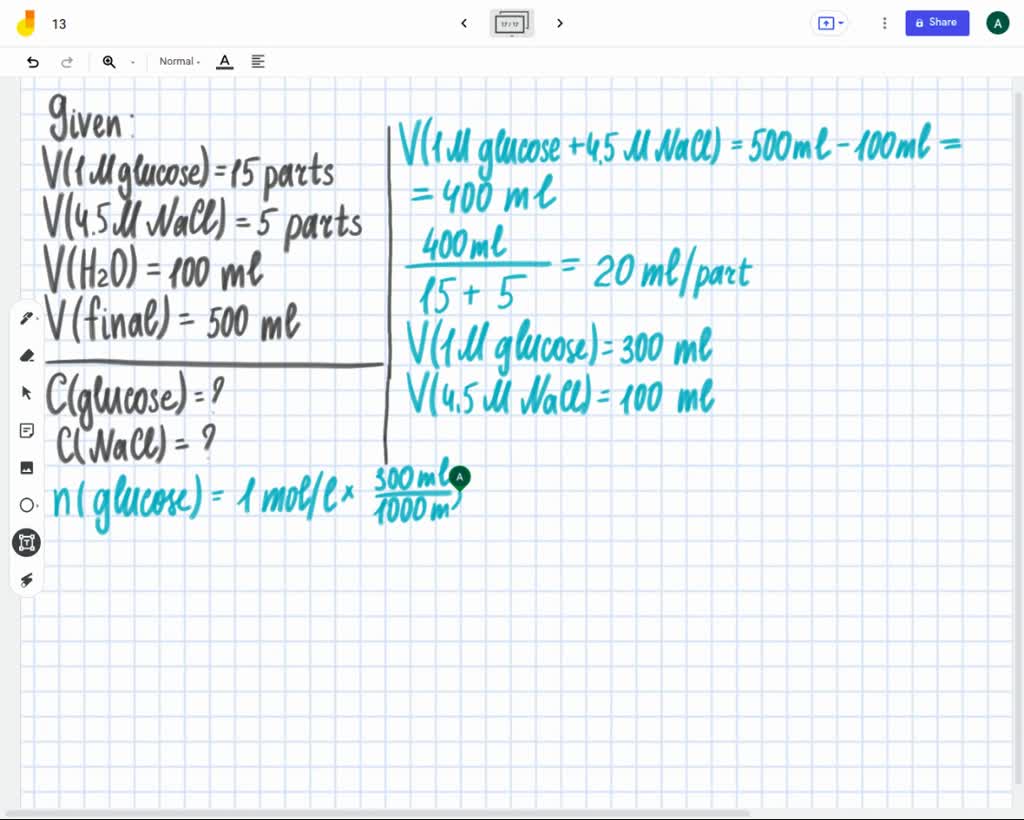 13
17 / 17
Share
A
Normal
A
Given:
V(1M glucose) = 15 parts
V(4.5M NaCl) = 5 parts
V(H₂O) = 100 ml
V(final) = 500 ml
C(glucose) = ?
C(NaCl) = ?
V(1M glucose + 4,5 M NaCl) = 500 ml - 100 ml =
= 400 ml
400 ml
15 + 5
= 20 ml/part
V(1M glucose) = 300 ml
V(4,5 M NaCl) = 100 ml
n(glucose) = 1 mol/l × 300 ml
1000 m
A